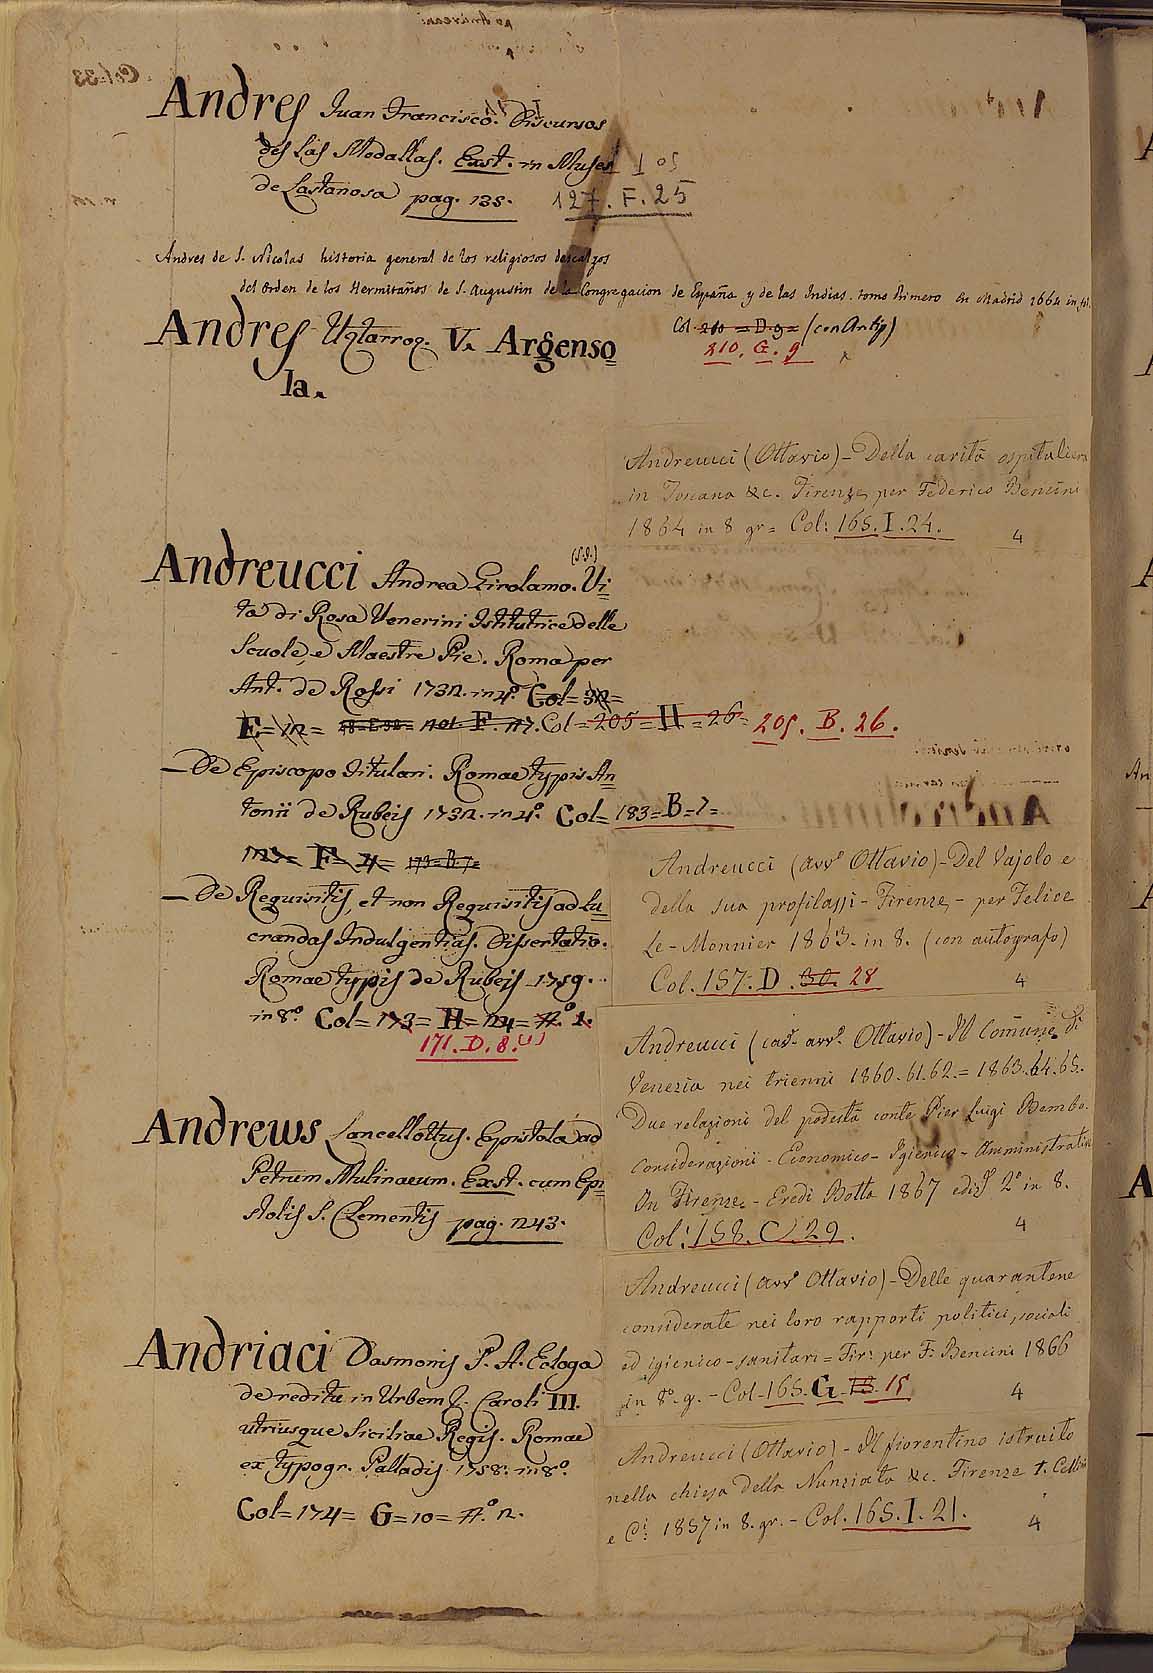 Andres Juan Francisco. Discursos
des las Medallas. Exst. in Museo
de Lastanosa pag. 135. 127. F. 25
Andres de S. Nicolas historia general de los religiosos descalzos
del Orden de los Hermitaños de S. Augustin de la Congregacion de España y de las Indias. tomo Primero En Madrid 1664 in fol.
Col. 210 = D. 9 = (con Antip)
210. G. 9
Andres Uztarroz. V. Argenso
la.
Andreucci Andrea Girolamo. (S.J.) Vi
ta di Rosa Venerini Istitutrice delle
Scuole, e Maestre Pie. Roma per
Ant. de Rossi 1732. in 4º. Col = 32 =
E = 12 = F. 17. Col = 205 = H = 26 = 205. B. 26.
— De Episcopo titulari. Romae typis An
tonii de Rubeis 1732. in 4º. Col = 183 = B = 7 =
123 = F = 21 = 173 = B. 7 =
— De Requisitis, et non Requisitis ad Lu
crandas Indulgentias. Dissertatio.
Romae typis de Rubeis 1759.
in 8º. Col = 173 = H = 124 = nº 1.
171. D. 8. (1)
Andrews Lancellottus. Epistola ad
Petrum Mulinaeum. Exst. cum Epi
stolis S. Clementis pag. 1243.
Andriaci Dasmonis P. A. Ecloga
de reditu in Urbem J. Caroli III.
utriusque Siciliae Regis. Romae
ex typogr. Palladis 1758. in 8º.
Col = 174 = G = 10 = nº. 12.
Andreucci (Ottavio) - Della carità ospitaliera
in Toscana &c. Firenze per Federico Bencini
1864 in 8 gr = Col: 165. I. 24.
4
Andreucci (avvº Ottavio) - Del Vajolo e
della sua profilassi - Firenze - per Felice
Le-Monnier 1863. in 8. (con autografo)
Col. 157. D. 30. 28
4
Andreucci (cavr. avvº. Ottavio) - Il Comune di
Venezia nei trienni 1860. 61. 62. = 1863. 64. 65.
Due relazioni del podestà conte Pier Luigi Bembo.
Considerazioni - Economico - Igienico - Amministrative
In Firenze - Eredi Botta 1867 ediz 2º in 8.
Col: 158. C. 29.
4
Andreucci (avvº Ottavio) - Delle quarantene
considerate nei loro rapporti politici, sociali
ed igienico-sanitari = Fir: per F. Bencini 1866
in 8º. g. - Col - 165. G. 13. 15
4
Andreucci (Ottavio) - Il fiorentino istruito
nella chiesa della Nunziata &c. Firenze t. Cellini
e Ci: 1857 in 8. gr. - Col. 165. I. 21.
4